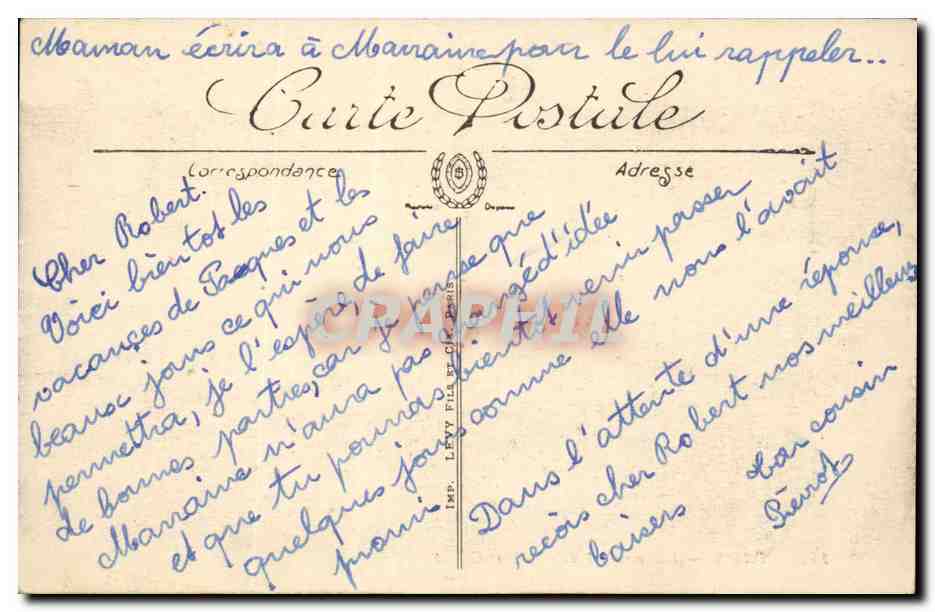 Maman écrira à Marraine pour le lui rappeler..
Carte Postale
Correspondance
Adresse
Cher Robert.
Voici bientot les
vacances de Pacques et les
beaux jours ce qui nous
permettra, je l'espère, de faire
de bonnes parties, car je pense que
Marraine n'aura pas changé d'idée
et que tu pourras bientot venir passer
quelques jours comme elle nous l'avait
promis
Dans l'attente d'une réponse,
reçois cher Robert nos meilleurs
baisers
Ton cousin
Pierrot
IMP. LEVY FILS ET CIE, PARIS
CPAPHIL